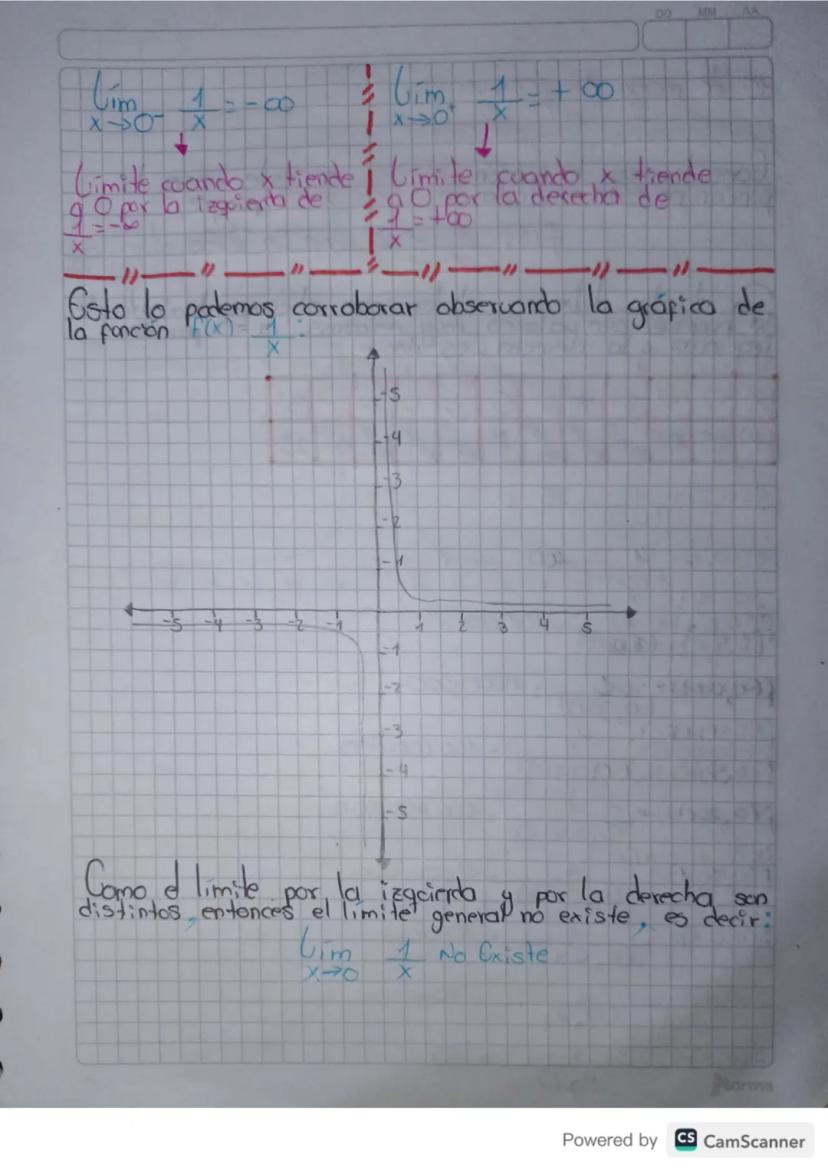 DD MM AA
Lim 1/x = -∞
x→0⁻
Límite cuando x tiende
a 0 por la izquierda de
1/x = -∞
Lim 1/x = +∞
x→0⁺
Límite cuando x tiende
a 0 por la derecha de
1/x = +∞
Esto lo podemos corroborar observando la gráfica de
la función f(x) = 1/x :
5
4
3
2
1
-5 -4 -3 -2 -1 1 2 3 4 5
-1
-2
-3
-4
-5
Como el límite por la izquierda y por la derecha son
distintos, entonces el límite general no existe, es decir:
Lim 1/x No Existe
x→0
Norma
Powered by CS CamScanner